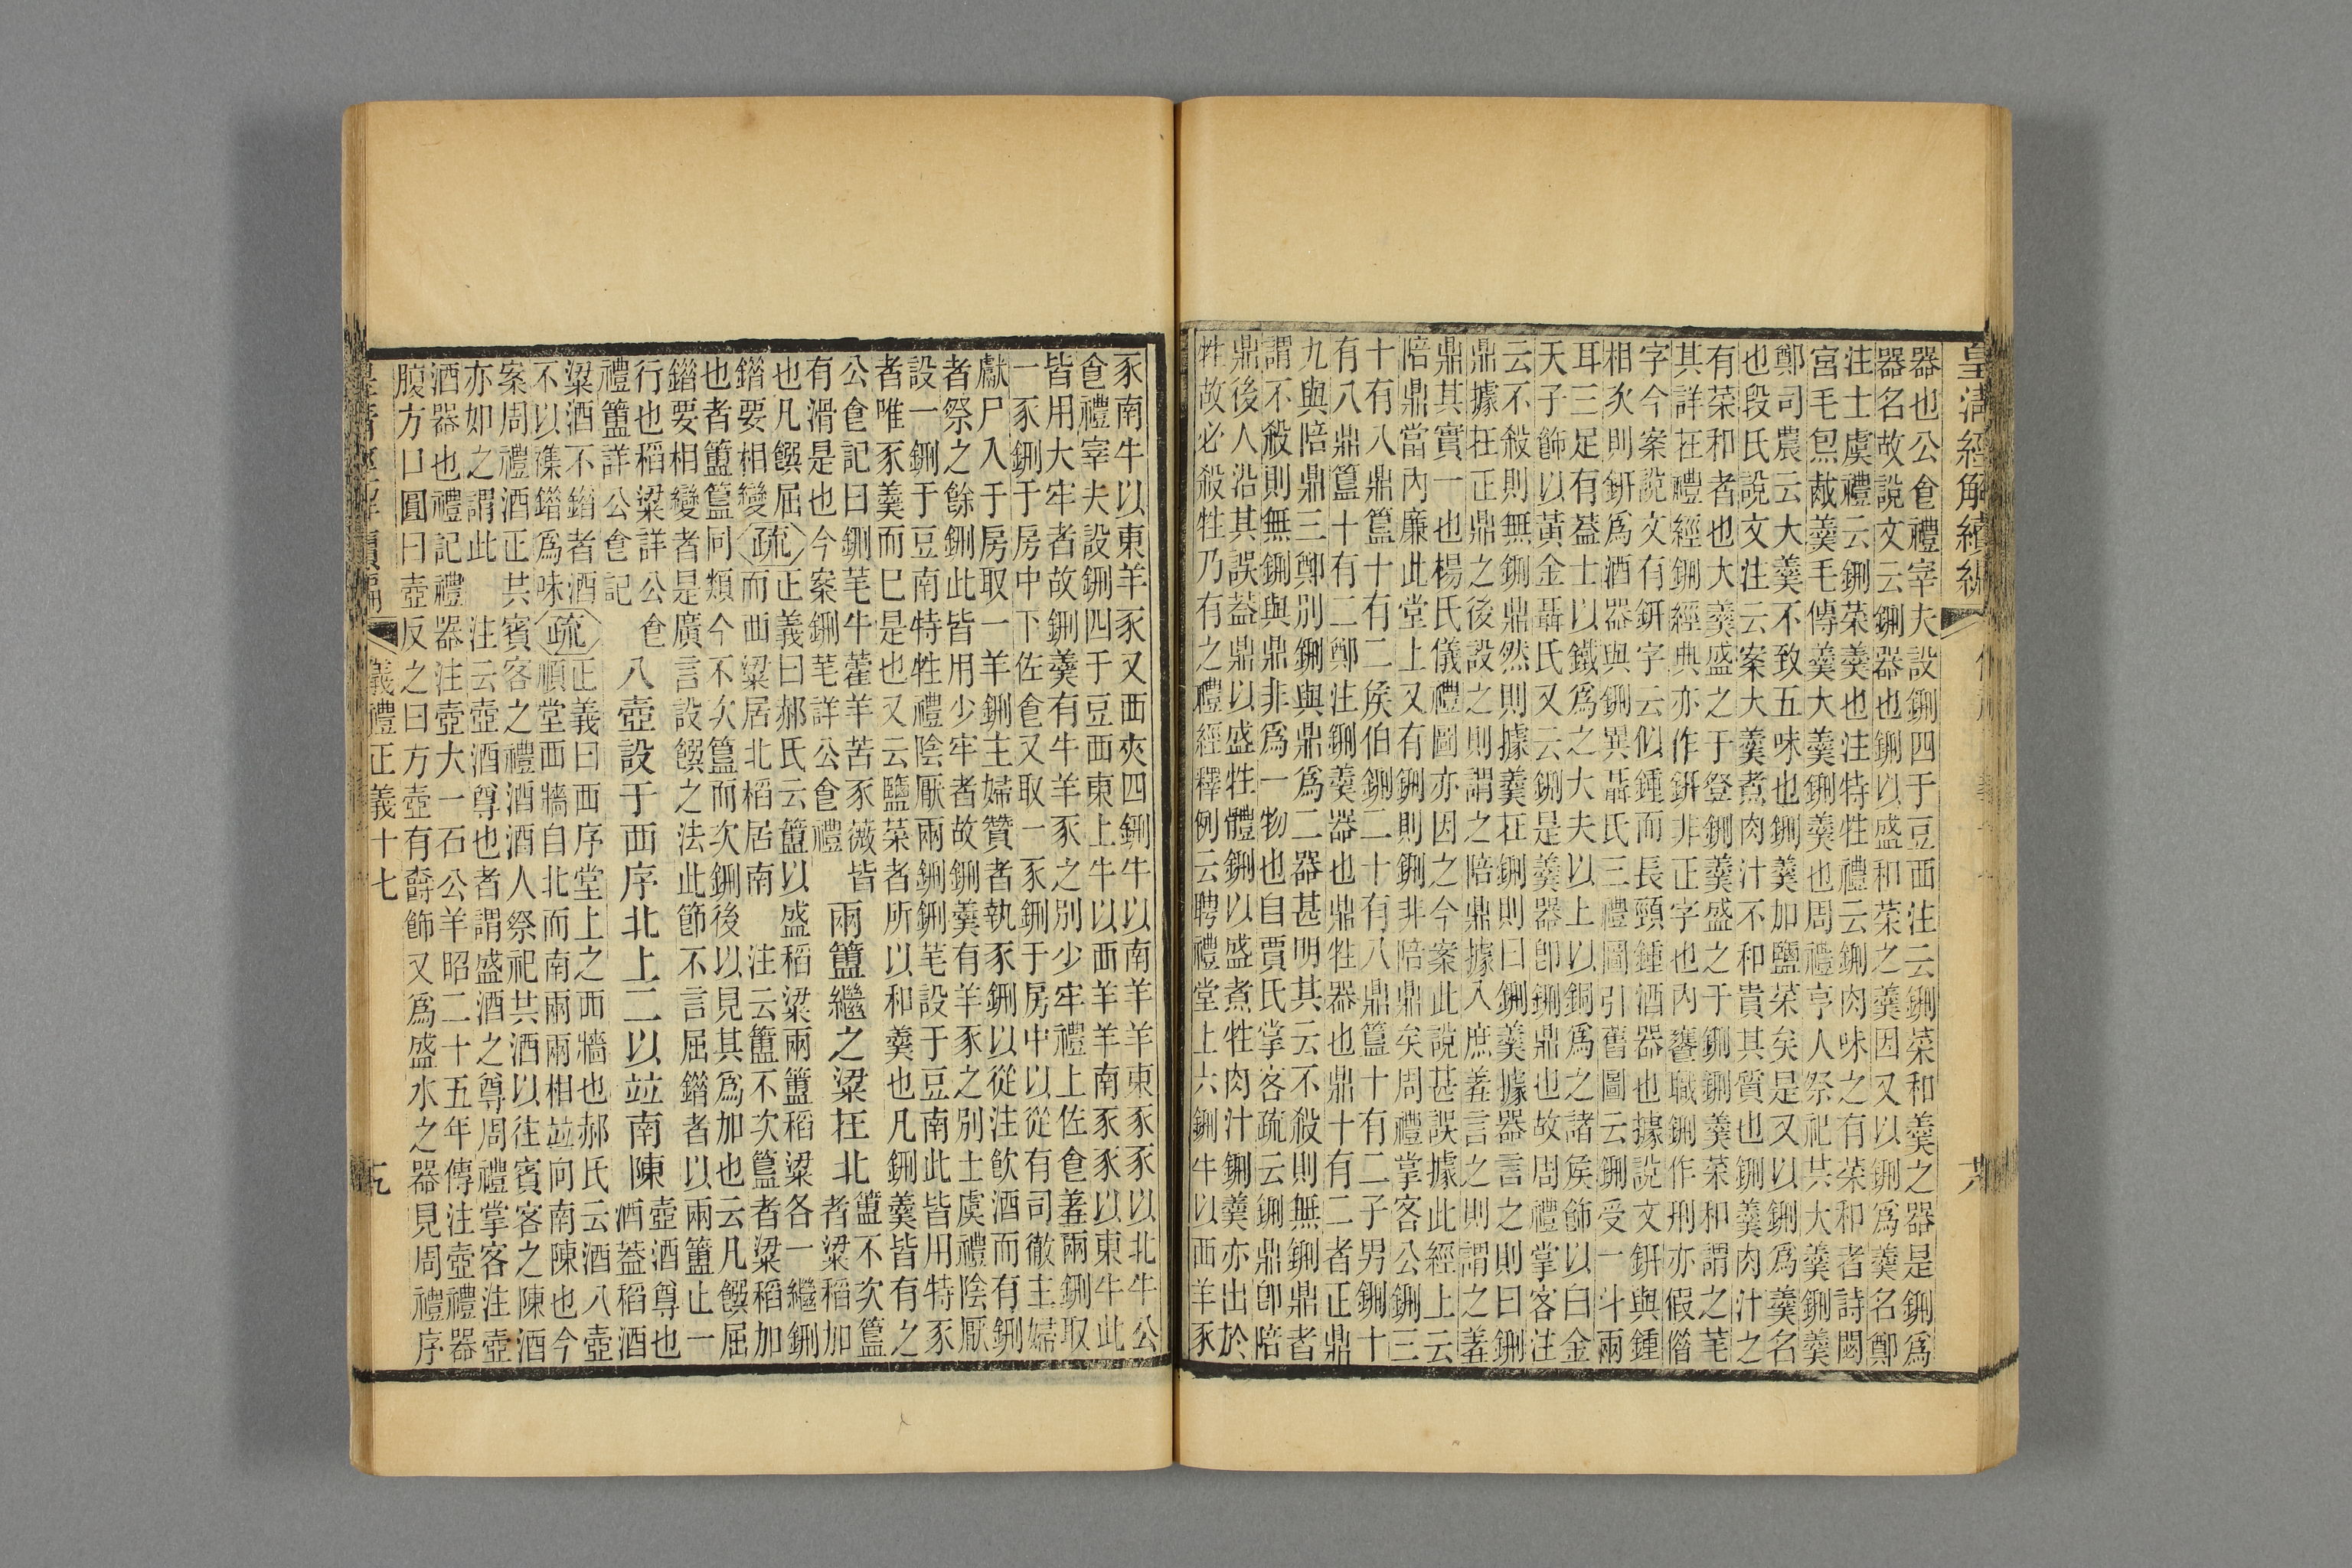 皇清經解續編
器也公食禮宰夫設鉶四于豆西注云鉶菜和羹之器是鉶爲
器名故說文云鉶器也鉶以盛和菜之羹因又以鉶爲羹名鄭
注士虞禮云鉶菜羹也注特牲禮云鉶肉味之有菜和者詩閟
宮毛炰胾羹毛傳羹大羹鉶羹也周禮亨人祭祀共大羹鉶羹
鄭司農云大羹不致五味也鉶羹加鹽菜矣是又以鉶爲羹名
也段氏說文注云案大羹煮肉汁不和貴其質也鉶羹肉汁之
有菜和者也大羹盛之于登鉶羹盛之于鉶鉶羹菜和謂之芼
其詳在禮經鉶經典亦作鈃非正字也內饔職鉶作刑亦假借
字今案說文有鈃字云似鍾而長頸鍾酒器也據說文鈃與鍾
相次則鈃爲酒器與鉶異聶氏三禮圖引舊圖云鉶受一斗兩
耳三足有葢士以鐵爲之大夫以上以銅爲之諸侯飾以白金
天子飾以黃金聶氏又云鉶是羹器卽鉶鼎也故周禮掌客注
云不殺則無鉶鼎然則據羹在鉶則曰鉶羹據器言之則曰鉶
鼎據在正鼎之後設之則謂之陪鼎據入庶羞言之則謂之羞
鼎其實一也楊氏儀禮圖亦因之今案此說甚誤據此經上云
陪鼎當內廉此堂上又有鉶則鉶非陪鼎矣周禮掌客公鉶三
十有八鼎簋十有二侯伯鉶二十有八鼎簋十有二子男鉶十
有八鼎簋十有二鄭注鉶羹器也鼎牲器也鼎十有二者正鼎
九與陪鼎三鄭別鉶與鼎爲二器甚明其云不殺則無鉶鼎者
謂不殺則無鉶與鼎非爲一物也自賈氏掌客疏云鉶鼎卽陪
鼎後人沿其誤葢鼎以盛牲體鉶以盛煮牲肉汁鉶羹亦出於
牲故必殺牲乃有之禮經釋例云聘禮堂上六鉶牛以西羊豕
豕南牛以東羊豕又西夾四鉶牛以南羊羊東豕豕以北牛公
食禮宰夫設鉶四于豆西東上牛以西羊羊南豕豕以東牛此
皆用大牢者故鉶羹有牛羊豕之別少牢禮上佐食羞兩鉶取
一豕鉶于房中下佐食又取一豕鉶于房中以從有司徹主婦
獻尸入于房取一羊鉶主婦贊者執豕鉶以從注飮酒而有鉶
者祭之餘鉶此皆用少牢者故鉶羹有羊豕之別士虞禮陰厭
設一鉶于豆南特牲禮陰厭兩鉶鉶芼設于豆南此皆用特豕
者唯豕羹而已是也又云鹽菜者所以和羹也凡鉶羹皆有之
公食記曰鉶芼牛藿羊苦豕薇皆
有滑是也今案鉶芼詳公食禮
兩簠繼之粱在北
簠不次簋
者粱稻加
也凡饌屈
錯要相變
疏
正義曰郝氏云簠以盛稻粱兩簠稻粱各一繼鉶
而西粱居北稻居南 注云簠不次簋者粱稻加
也者簠簋同類今不次簋而次鉶後以見其爲加也云凡饌屈
錯要相變者是廣言設饌之法此節不言屈錯者以兩簠止一
行也稻粱詳公食
禮簠詳公食記
八壺設于西序北上二以竝南陳
壺酒尊也
酒葢稻酒
粱酒不錯者酒
不以襍錯爲味
疏
正義曰西序堂上之西牆也郝氏云酒八壺
順堂西牆自北而南兩兩相竝向南陳也今
案周禮酒正共賓客之禮酒酒人祭祀共酒以往賓客之陳酒
亦如之謂此 注云壺酒尊也者謂盛酒之尊周禮掌客注壺
酒器也禮記禮器注壺大一石公羊昭二十五年傳注壺禮器
腹方口圓曰壺反之曰方壺有爵飾又爲盛水之器見周禮序
儀禮正義十七